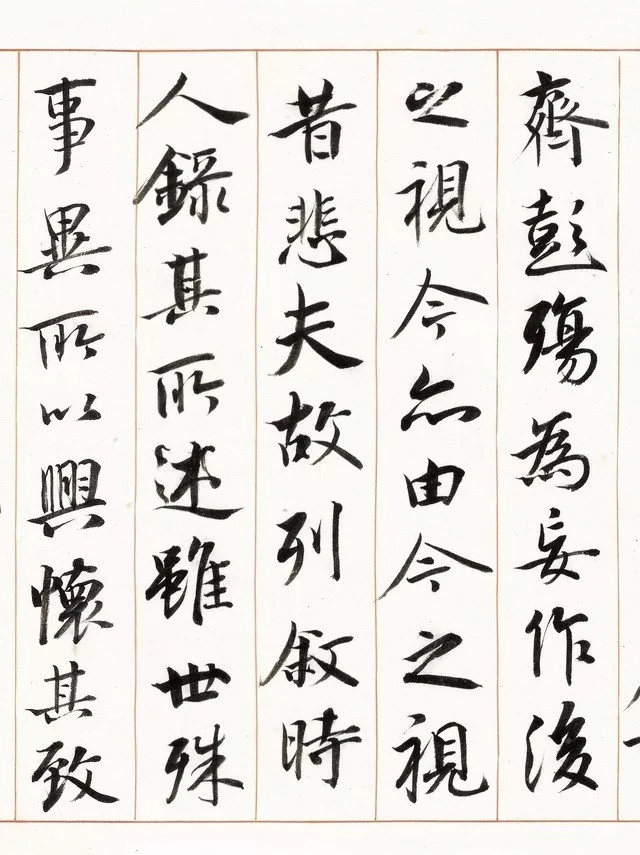 齊彭殤為妄作後
之視今亦由今之視
昔悲夫故列敘時
人錄其所述雖世殊
事異所以興懷其致